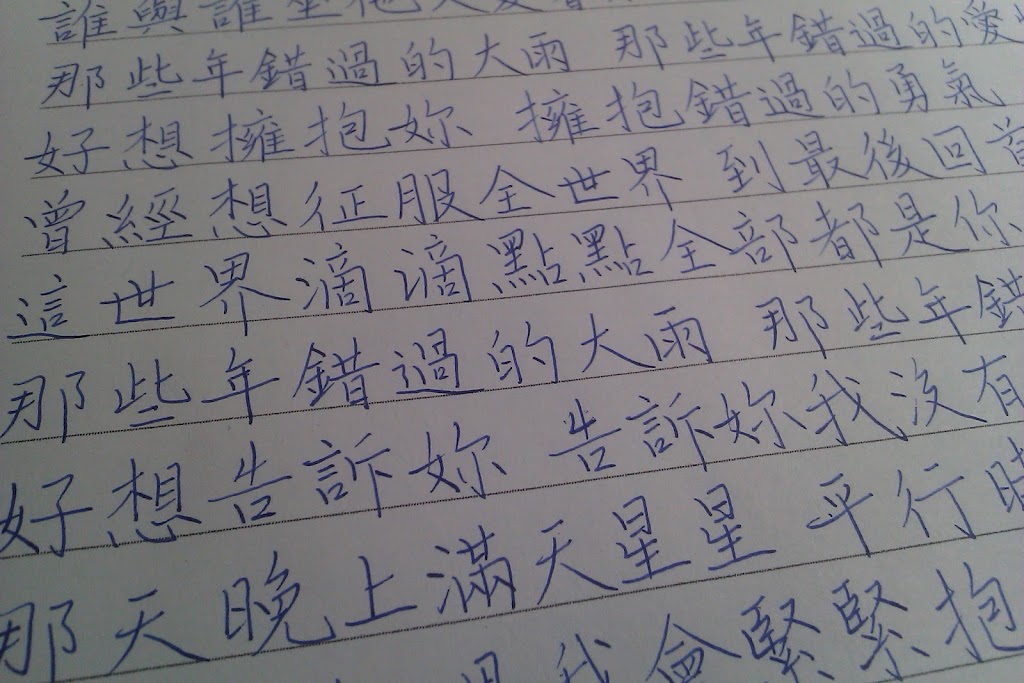 誰與誰
那些年錯過的大雨 那些年錯過的愛
好想擁抱妳 擁抱錯過的勇氣
曾經想征服全世界 到最後回首
這世界滴滴點點全部都是你
那些年錯過的大雨 那些年錯
好想告訴妳 告訴妳我沒有
那天晚上滿天星星 平行時
我會緊緊抱